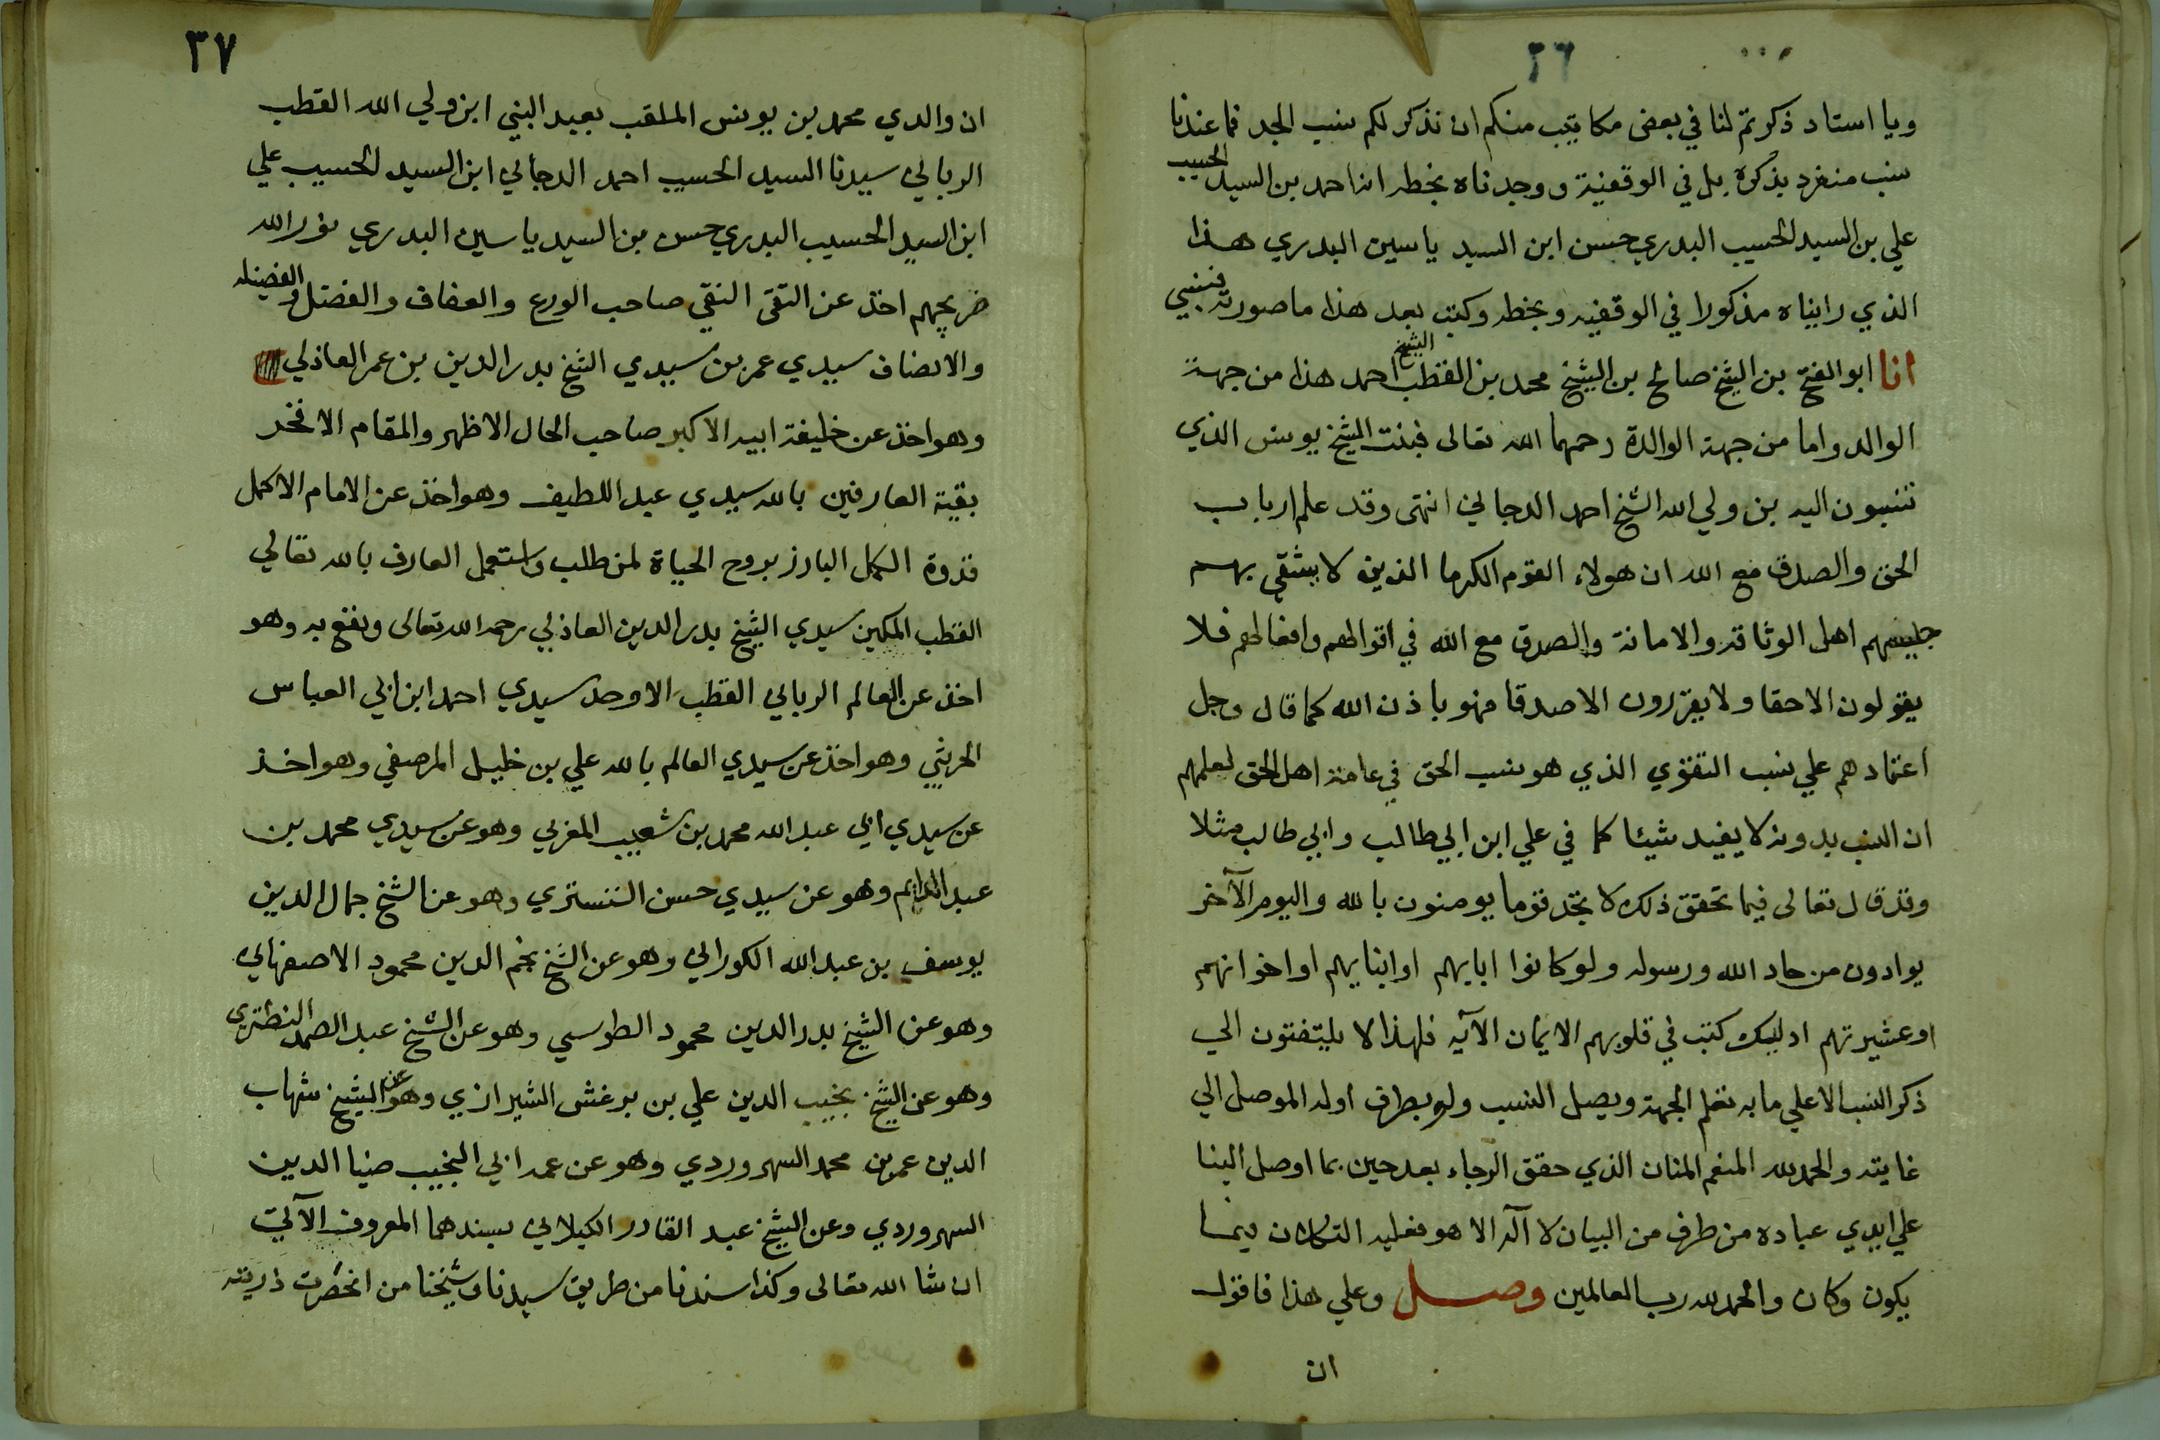 ٣٦
ويا استاد ذكرتم لنا في بعض مكاتيب منكم ان نذكر لكم نسب الجد فما عندنا
نسب منفرد بذكره بل في الوقفية ووجدناه بخطه انه احمد بن السيد الحسيب
علي بن السيد الحسيب البدري حسن ابن السيد ياسين البدري هذا
الذي رايناه مذكورا في الوقفيه وبخطه وكتب بعد هذا ما صورته فنسبي
انا ابو الفتح بن الشيخ صالح بن الشيخ محمد بن القطب الشيخ احمد هذا من جهة
الوالد واما من جهة الوالدة رحمهما الله تعالى فبنت الشيخ يونس الذي
تنسبون اليه بن ولي الله الشيخ احمد الدجاني انتهى وقد علم ارباب
الحق والصدق مع الله ان هولاء القوم الكرما الذين لا يشقي بهم
جليسهم اهل الوثاقة والامانة والصدق مع الله في اقوالهم وافعالهم فلا
يقولون الا حقا ولا يقررون الا صدقا فهو باذن الله كما قال وجل
اعتمادهم علي نسب التقوي الذي هو نسب الحق في عامة اهل الحق لعلمهم
ان النسب بدونه لا يفيد شيئا كما في علي ابن ابي طالب وابي طالب مثلا
وقد قال تعالى فيما تحقق ذلك لا تجد قوما يومنون بالله واليوم الآخر
يوادون من حاد الله ورسوله ولو كانوا ابايهم او ابنايهم او اخوانهم
او عشيرتهم اوليك كتب في قلوبهم الايمان الآيه فلهذا لا يلتفتون الي
ذكر النسب الا علي ما به تعلم الجهة ويصل النسيب ولو بطرف اوله الموصل الي
غايته والحمد لله المنعم المنان الذي حقق الرجاء بعد حين بما اوصل الينا
علي ايدي عباده من طرف من البيان لا آله الا هو فعليه التكلان فيما
يكون وكان والحمد لله رب العالمين وصل وعلي هذا فاقول
ان
٣٧
ان والدي محمد بن يونس الملقب بعبد النبي ابن ولي الله القطب
الرباني سيدنا السيد الحسيب احمد الدجاني ابن السيد الحسيب علي
ابن السيد الحسيب البدري حسن بن السيد ياسين البدري نور الله
ضريحهم اخذ عن التقى النقي صاحب الورع والعفاف والفضل والفضيله
والانصاف سيدي عمر بن سيدي الشيخ بدر الدين بن عمر العاذلي
وهو اخذ عن خليفة ابيه الاكبر صاحب الحال الاظهر والمقام الافخر
بقية العارفين بالله سيدي عبد اللطيف وهو اخذ عن الامام الاكمل
قدوة الكمل البارز بروح الحياة لمن طلب واستعمل العارف بالله تعالي
القطب المكين سيدي الشيخ بدر الدين العاذلي رحمه الله تعالى ونفع به وهو
اخذ عن العالم الرباني القطب الاوحد سيدي احمد ابن ابي العباس
الحريثي وهو اخذ عن سيدي العالم بالله علي بن خليل المرصفي وهو اخذ
عن سيدي ابي عبد الله محمد بن شعيب المغربي وهو عن سيدي محمد بن
عبد الدايم وهو عن سيدي حسن التستري وهو عن الشيخ جمال الدين
يوسف بن عبد الله الكوراني وهو عن الشيخ نجم الدين محمود الاصفهاني
وهو عن الشيخ بدر الدين محمود الطوسي وهو عن الشيخ عبد الصمد النطنزي
وهو عن الشيخ نجيب الدين علي بن برغش الشيرازي وهو عن الشيخ شهاب
الدين عمر بن محمد السهروردي وهو عن عمه ابي النجيب ضيا الدين
السهروردي وعن الشيخ عبد القادر الكيلاني بسندهما المعروف الآتي
ان شا الله تعالى وكذا سندنا من طريق سيدنا وشيخنا من انحصرت ذريته